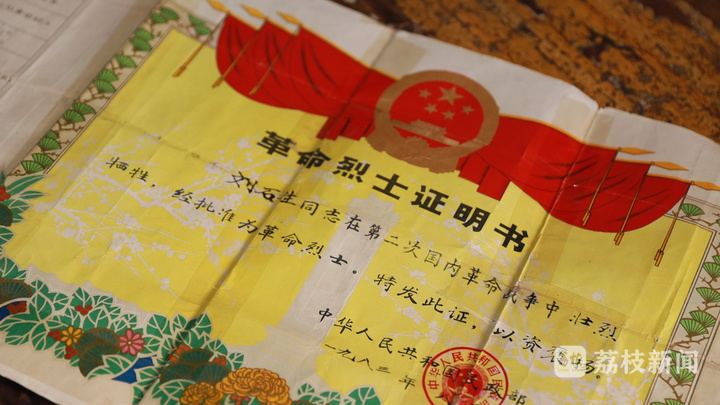 革命烈士证明书
刘石生同志在第二次国内革命战争中壮烈
牺牲，经批准为革命烈士。特发此证，以资
中华人民共和国民政部
一九八三年
荔枝新闻